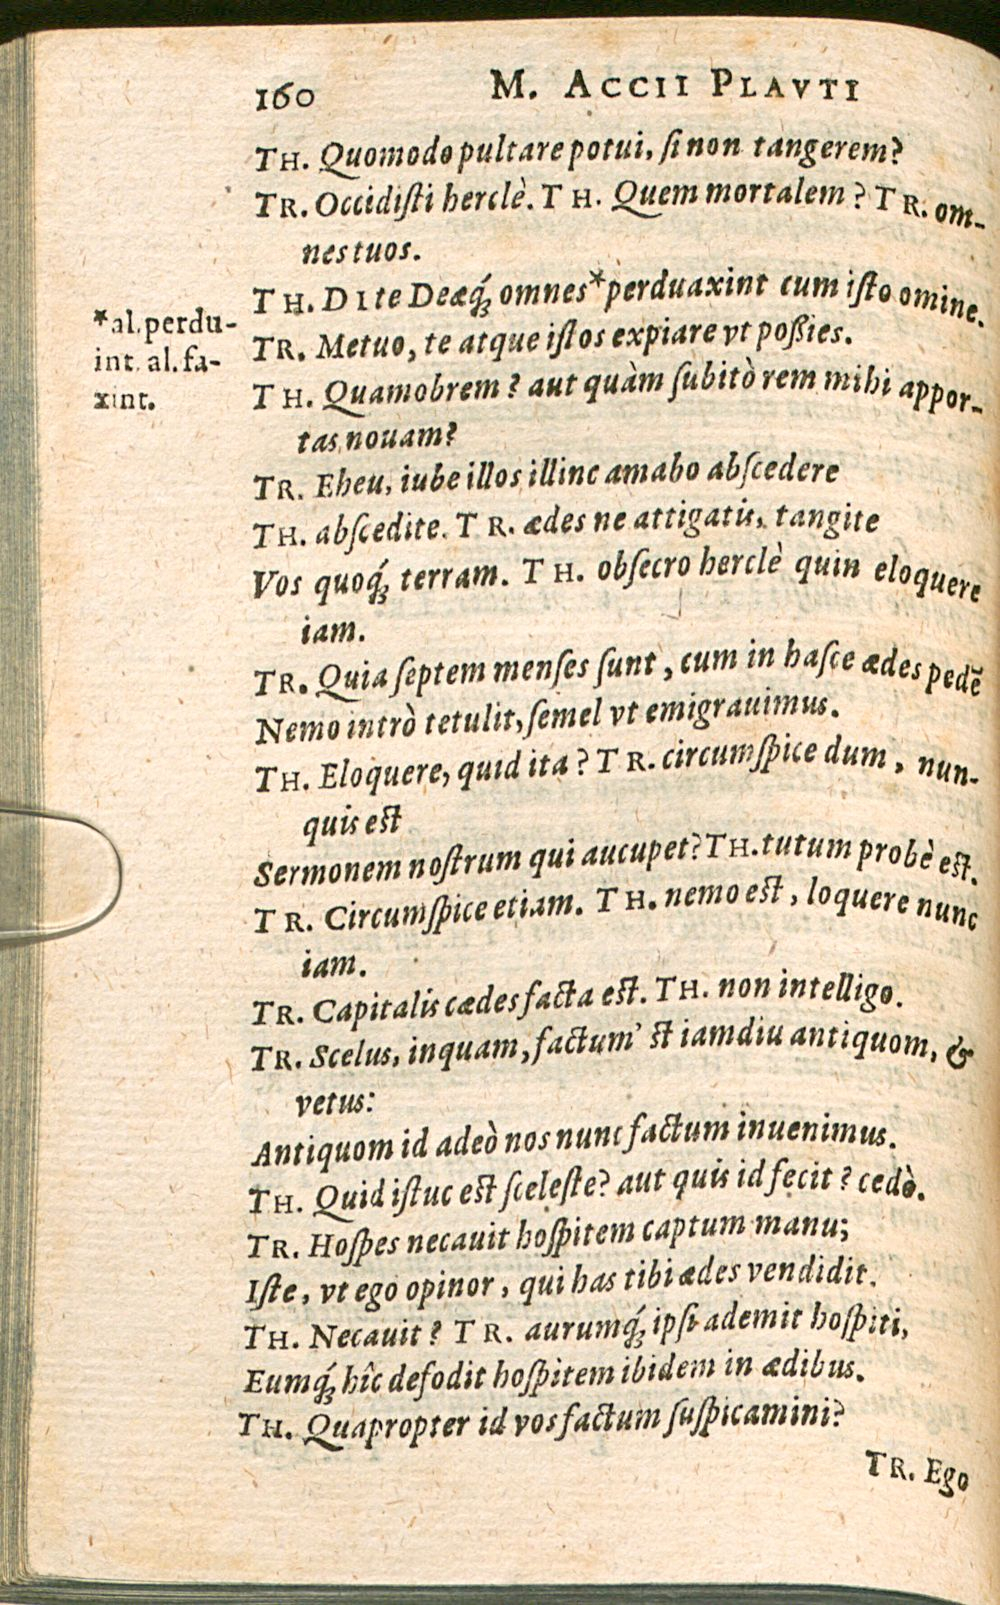 160 M. ACCII PLAVTI
TH. Quomodo pultare potui, ſi non tangerem?
TR. Occidiſti herclè. TH. Quem mortalem? TR. om-
nes tuos.
TH. DI te Deæq́; omnes *perduaxint cum iſto omine.
*al. perdu-
int. al. fa-
xint.
TR. Metuo, te atque iſtos expiare vt poßies.
TH. Quamobrem? aut quàm ſubitò rem mihi appor-
tas nouam?
TR. Eheu, iube illos illinc amabo abſcedere
TH. abſcedite. TR. ædes ne attigatis, tangite
Vos quoq́; terram. TH. obſecro herclè quin eloquere
iam.
TR. Quia ſeptem menſes ſunt, cum in haſce ædes pedẽ
Nemo intrò tetulit, ſemel vt emigrauimus.
TH. Eloquere, quid ita? TR. circumſpice dum, nun-
quis est
Sermonem noſtrum qui aucupet? TH. tutum probè est.
TR. Circumſpice etiam. TH. nemo est, loquere nunc
iam.
TR. Capitalis cædes facta est. TH. non intelligo.
TR. Scelus, inquam, factum' st iamdiu antiquom, &
vetus:
Antiquom id adeò nos nunc factum inuenimus.
TH. Quid iſtuc est ſceleſte? aut quis id fecit? cedò.
TR. Hoſpes necauit hoſpitem captum manu;
Iſte, vt ego opinor, qui has tibi ædes vendidit.
TH. Necauit? TR. aurumq́; ipſi ademit hoſpiti,
Eumq́; hîc defodit hoſpitem ibidem in ædibus.
TH. Quapropter id vos factum ſuſpicamini?
TR. Ego